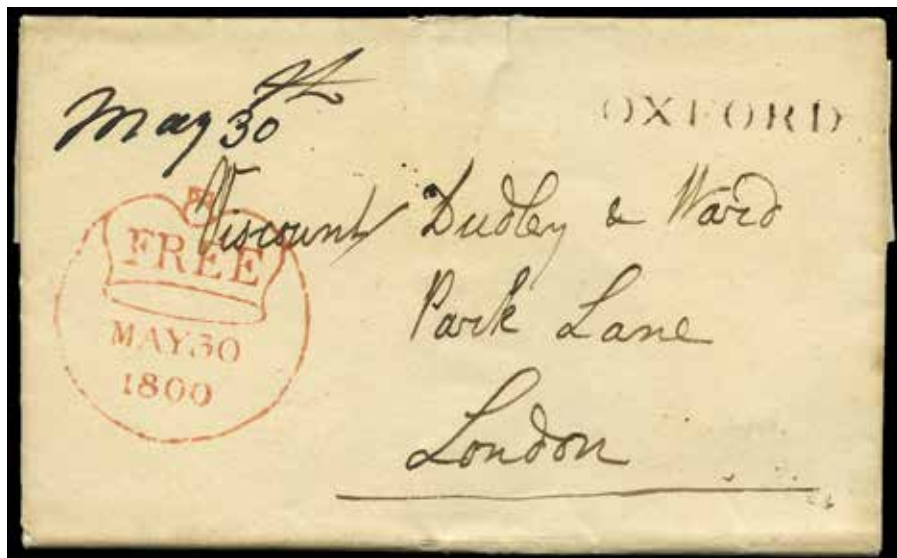 May 30th
OXFORD
Viscount Dudley & Ward
Park Lane
London
FREE
MAY 30
1800